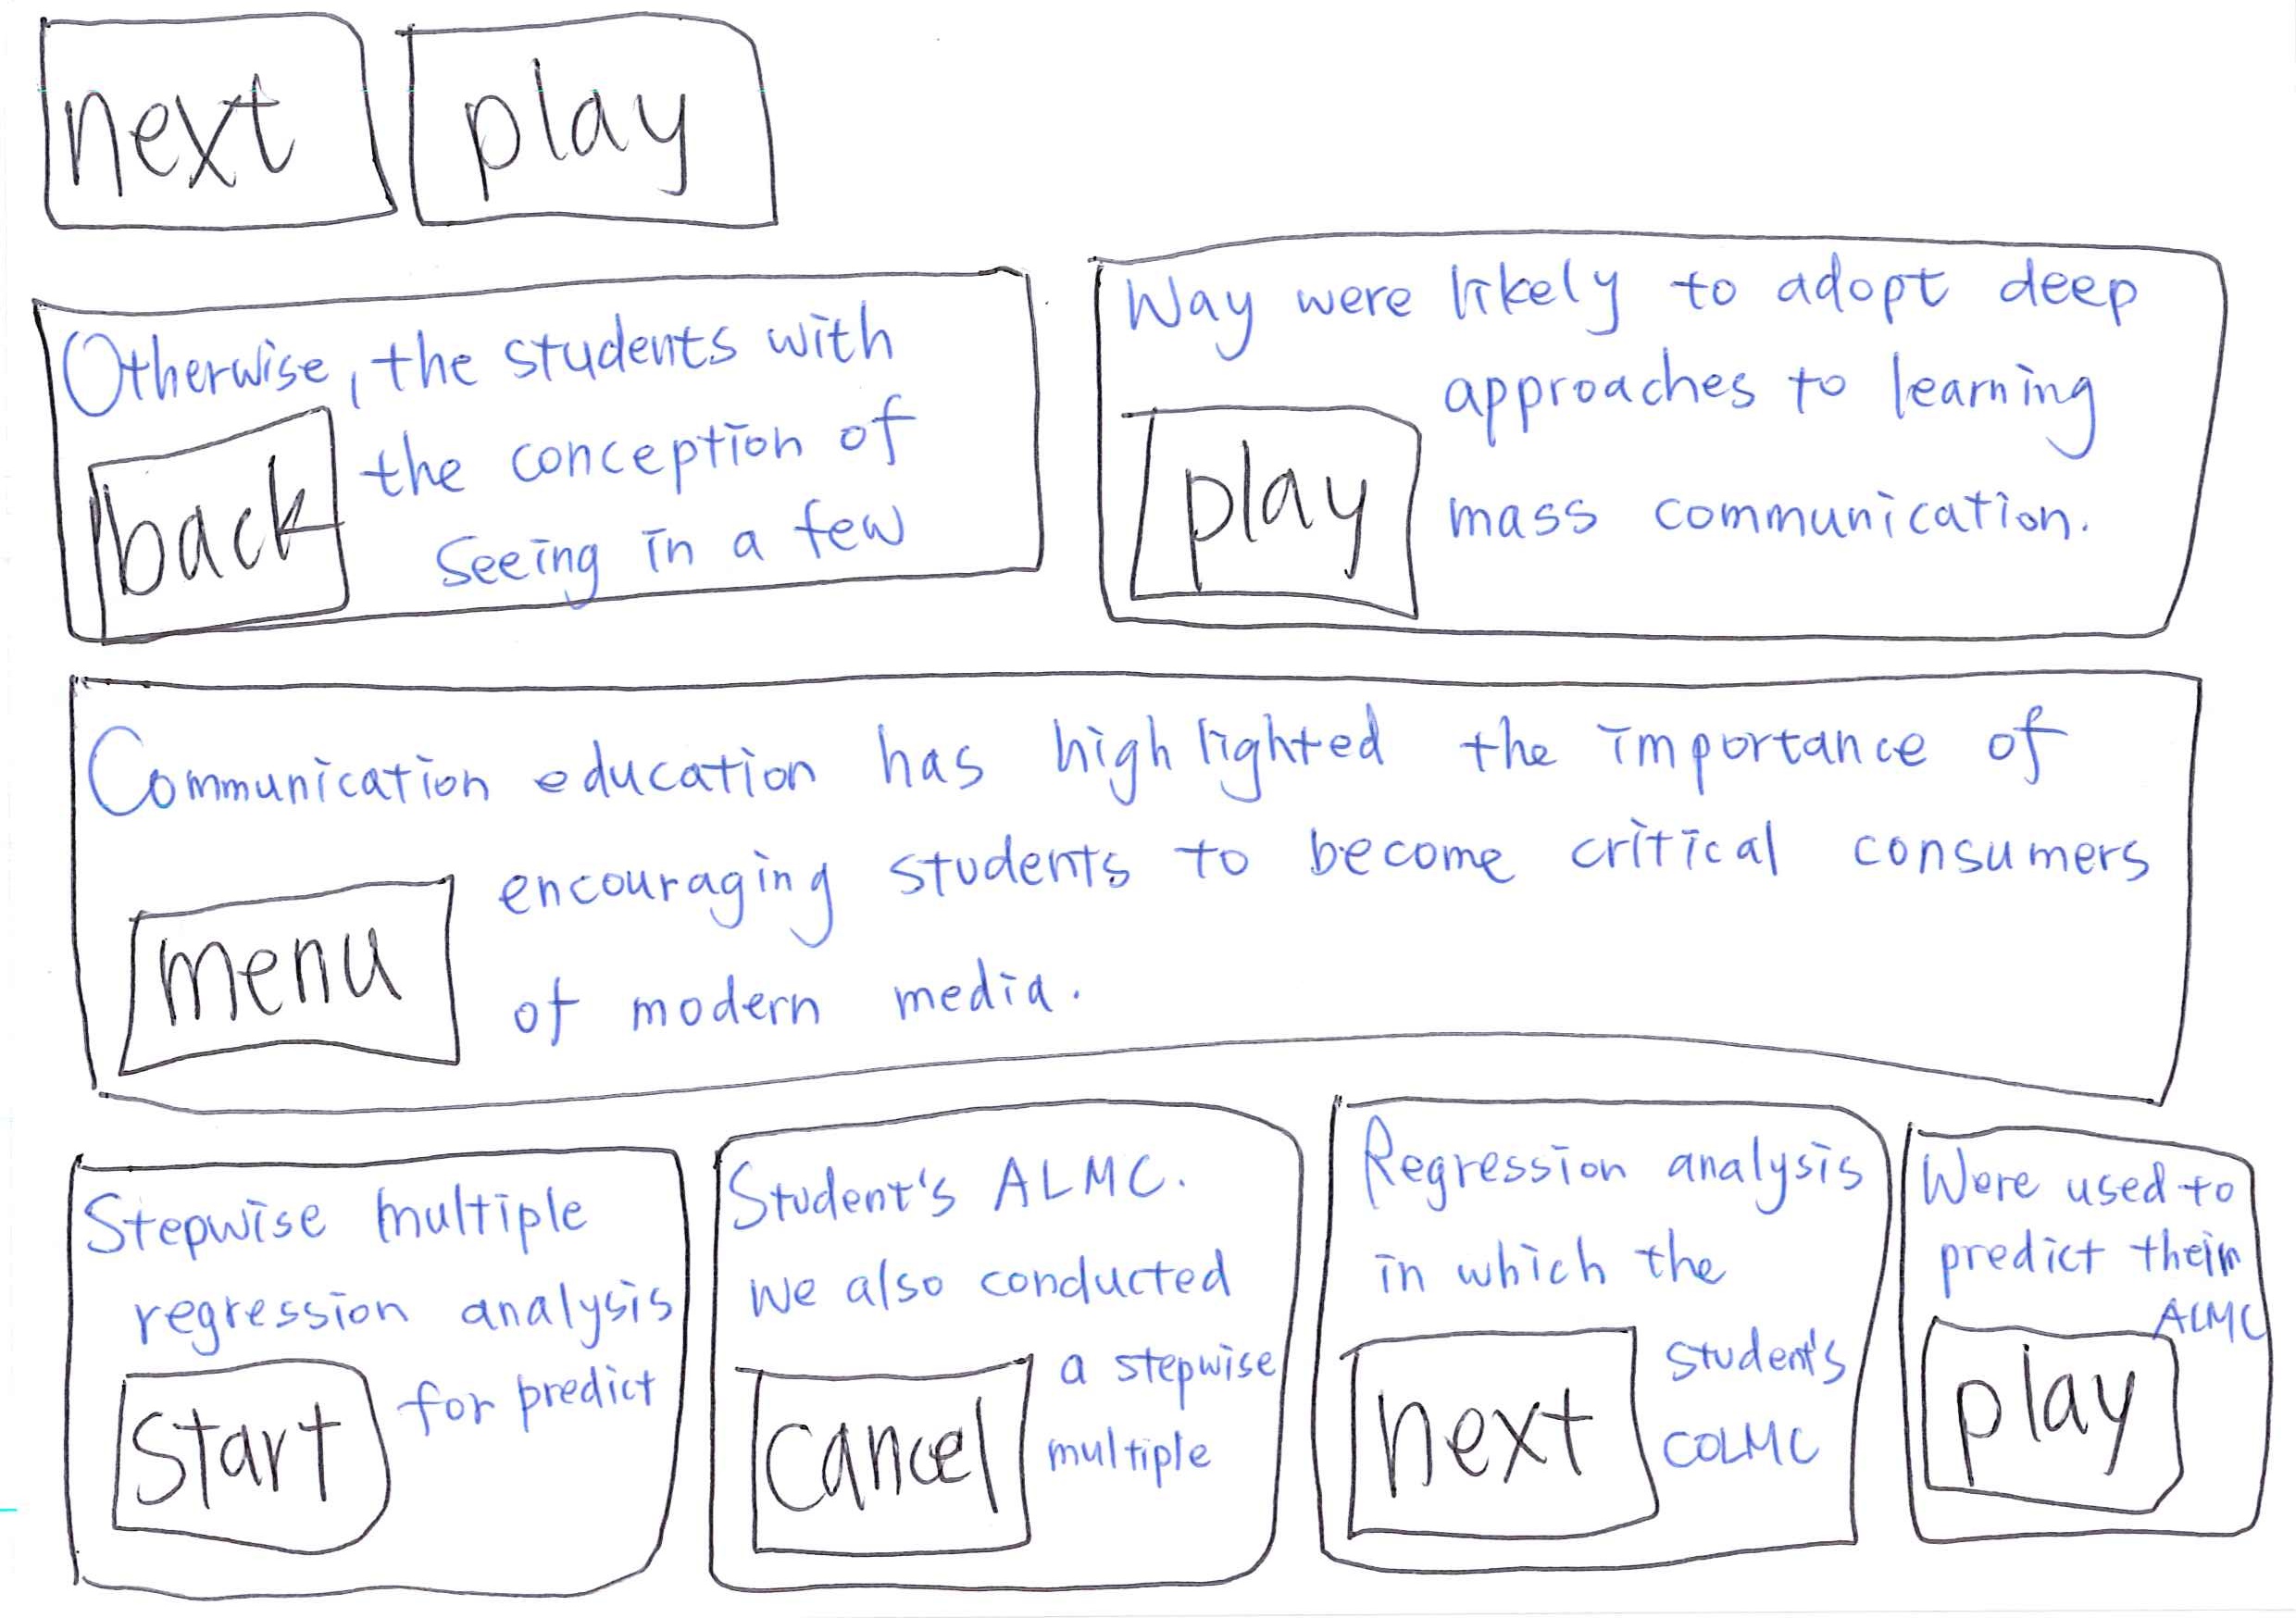 next play
Otherwise, the students with
the conception of
seeing in a few
back
Way were likely to adopt deep
approaches to learning
mass communication.
play
Communication education has highlighted the importance of
encouraging students to become critical consumers
of modern media.
menu
Stepwise multiple
regression analysis
for predict
start
Student's ALMC.
we also conducted
a stepwise
multiple
cancel
Regression analysis
in which the
student's
COLMC
next
Were used to
predict their
ALMC
play